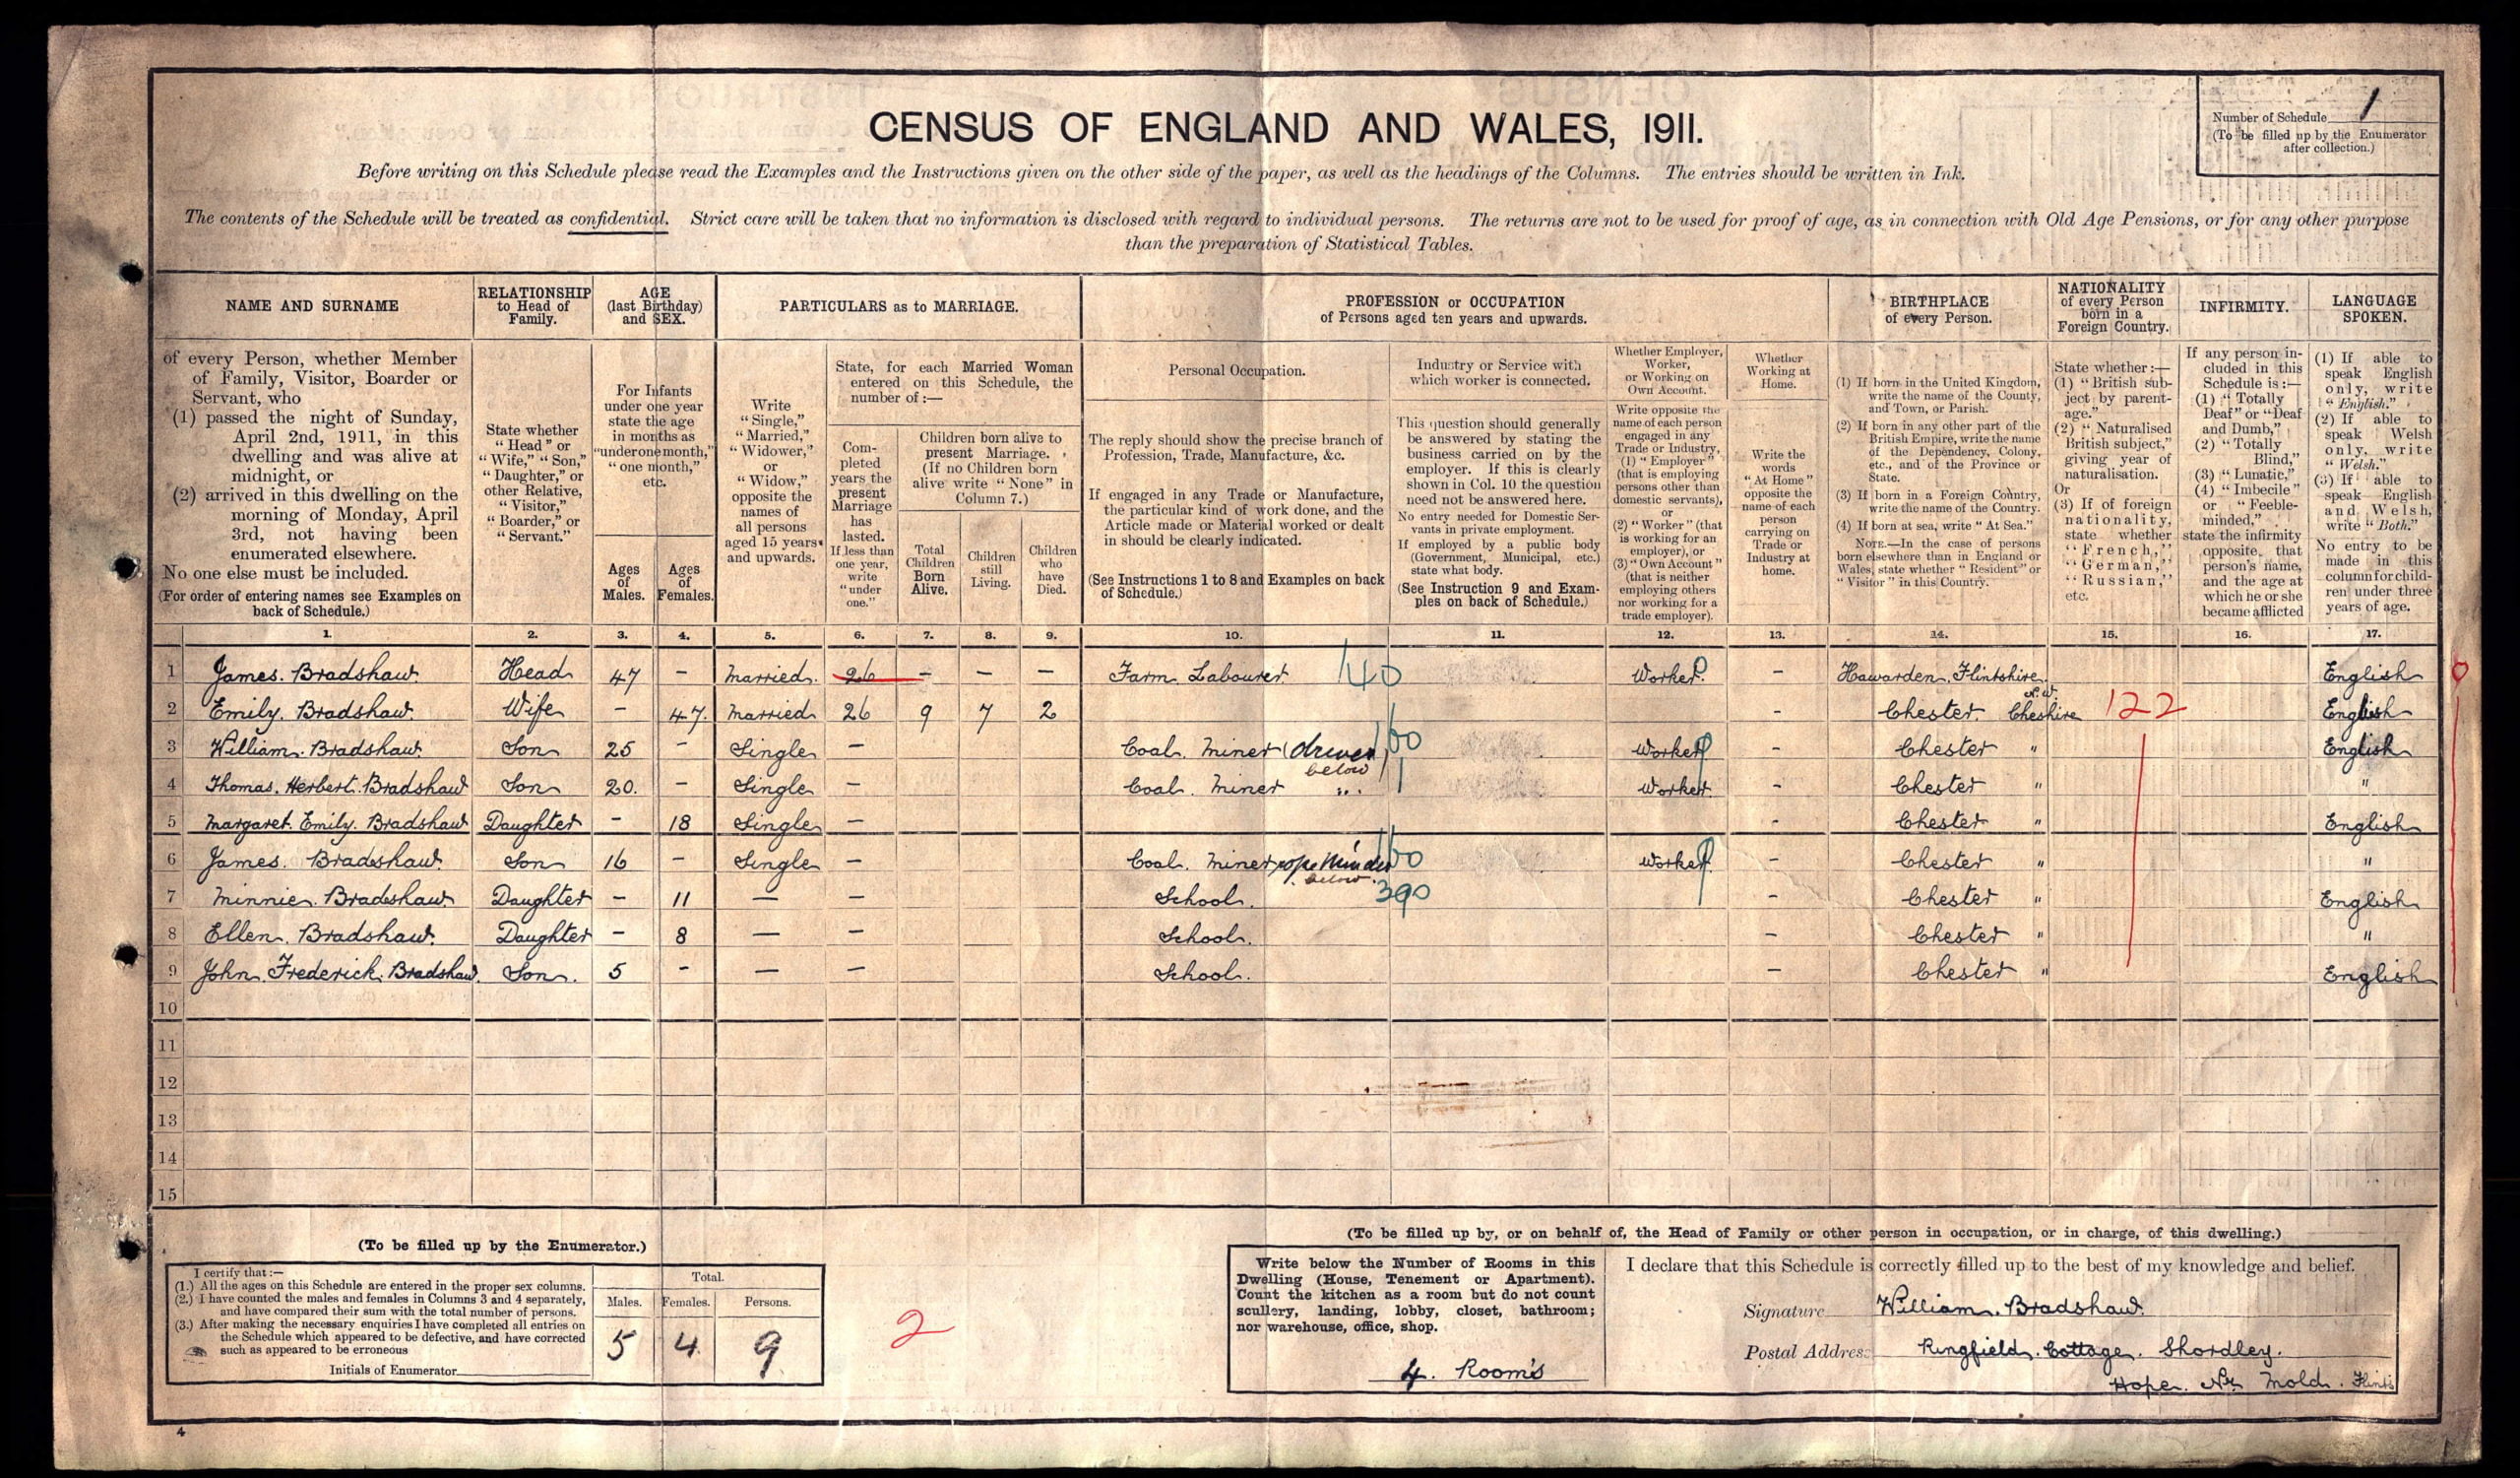 CENSUS OF ENGLAND AND WALES, 1911.
Number of Schedule 1
(To be filled up by the Enumerator
after collection.)
Before writing on this Schedule please read the Examples and the Instructions given on the other side of the paper, as well as the headings of the Columns. The entries should be written in Ink.
The contents of the Schedule will be treated as confidential. Strict care will be taken that no information is disclosed with regard to individual persons. The returns are not to be used for proof of age, as in connection with Old Age Pensions, or for any other purpose
than the preparation of Statistical Tables.
NAME AND SURNAME
of every Person, whether Member
of Family, Visitor, Boarder or
Servant, who
(1) passed the night of Sunday,
April 2nd, 1911, in this
dwelling and was alive at
midnight, or
(2) arrived in this dwelling on the
morning of Monday, April
3rd, not having been
enumerated elsewhere.
No one else must be included.
(For order of entering names see Examples on
back of Schedule.)
1.
RELATIONSHIP
to Head of
Family.
State whether
"Head" or
"Wife," "Son,"
"Daughter," or
other Relative,
"Visitor,"
"Boarder," or
"Servant."
2.
AGE
(last Birthday)
and SEX.
For Infants
under one year
state the age
in months as
"under one month,"
"one month,"
etc.
Ages
of
Males.
3.
Ages
of
Females.
4.
PARTICULARS as to MARRIAGE.
Write
"Single,"
"Married,"
"Widower,"
or
"Widow,"
opposite the
names of
all persons
aged 15 years
and upwards.
5.
State, for each Married Woman
entered on this Schedule, the
number of :—
Com-
pleted
years the
present
Marriage
has
lasted.
If less than
one year,
write
"under
one."
6.
Children born alive to
present Marriage.
(If no Children born
alive write "None" in
Column 7.)
Total
Children
Born
Alive.
7.
Children
still
Living.
8.
Children
who
have
Died.
9.
PROFESSION or OCCUPATION
of Persons aged ten years and upwards.
Personal Occupation.
The reply should show the precise branch of
Profession, Trade, Manufacture, &c.
If engaged in any Trade or Manufacture,
the particular kind of work done, and the
Article made or Material worked or dealt
in should be clearly indicated.
(See Instructions 1 to 8 and Examples on back
of Schedule.)
10.
Industry or Service with
which worker is connected.
This question should generally
be answered by stating the
business carried on by the
employer. If this is clearly
shown in Col. 10 the question
need not be answered here.
No entry needed for Domestic Ser-
vants in private employment.
If employed by a public body
(Government, Municipal, etc.)
state what body.
(See Instruction 9 and Exam-
ples on back of Schedule.)
11.
Whether Employer,
Worker,
or Working on
Own Account.
Write opposite the
name of each person
engaged in any
Trade or Industry,
(1) "Employer"
(that is employing
persons other than
domestic servants),
or
(2) "Worker" (that
is working for an
employer), or
(3) "Own Account"
(that is neither
employing others
nor working for a
trade employer).
12.
Whether
Working at
Home.
Write the
words
"At Home"
opposite the
name of each
person
carrying on
Trade or
Industry at
home.
13.
BIRTHPLACE
of every Person.
(1) If born in the United Kingdom,
write the name of the County,
and Town, or Parish.
(2) If born in any other part of the
British Empire, write the name
of the Dependency, Colony,
etc., and of the Province or
State.
(3) If born in a Foreign Country,
write the name of the Country.
(4) If born at sea, write "At Sea."
NOTE.—In the case of persons
born elsewhere than in England or
Wales, state whether "Resident" or
"Visitor" in this Country.
14.
NATIONALITY
of every Person
born in a
Foreign Country.
State whether :—
(1) "British sub-
ject by parent-
age."
(2) "Naturalised
British subject,"
giving year of
naturalisation.
Or
(3) If of foreign
nationality,
state whether
"French,"
"German,"
"Russian,"
etc.
15.
INFIRMITY.
If any person in-
cluded in this
Schedule is :—
(1) "Totally
Deaf" or "Deaf
and Dumb,"
(2) "Totally
Blind,"
(3) "Lunatic,"
(4) "Imbecile"
or "Feeble-
minded,"
state the infirmity
opposite that
person's name,
and the age at
which he or she
became afflicted
16.
LANGUAGE
SPOKEN.
(1) If able to
speak English
only, write
"English."
(2) If able to
speak Welsh
only, write
"Welsh."
(3) If able to
speak English
and Welsh,
write "Both."
No entry to be
made in this
column for child-
ren under three
years of age.
17.
1 James. Bradshaw. Head 47 – Married. 26 – – – Farm Labourer 140 Worker – Hawarden. Flintshire. English 0
2 Emily. Bradshaw. Wife – 47. Married 26 9 7 2 – Chester. Cheshire N.W. 122 English
3 William. Bradshaw. Son 25 – Single – Coal. Miner (driver below) 160 Worker – Chester " English
4 Thomas. Herbert. Bradshaw Son 20. – Single – Coal. Miner " Worker – Chester " "
5 Margaret. Emily. Bradshaw Daughter – 18 Single – – Chester " English
6 James. Bradshaw. Son 16 – Single – Coal. Miner rope minder below 160 Worker – Chester " "
7 Minnie. Bradshaw Daughter – 11 — – School. 390 – Chester " English
8 Ellen. Bradshaw. Daughter – 8 — – School. – Chester " "
9 John. Frederick. Bradshaw. Son. 5 – — – School. – Chester " English
10
11
12
13
14
15
(To be filled up by the Enumerator.)
I certify that :—
(1.) All the ages on this Schedule are entered in the proper sex columns.
(2.) I have counted the males and females in Columns 3 and 4 separately,
and have compared their sum with the total number of persons.
(3.) After making the necessary enquiries I have completed all entries on
the Schedule which appeared to be defective, and have corrected
such as appeared to be erroneous
Initials of Enumerator
Total.
Males. Females. Persons.
5 4 9
2
(To be filled up by, or on behalf of, the Head of Family or other person in occupation, or in charge, of this dwelling.)
Write below the Number of Rooms in this
Dwelling (House, Tenement or Apartment).
Count the kitchen as a room but do not count
scullery, landing, lobby, closet, bathroom;
nor warehouse, office, shop.
4. Room's
I declare that this Schedule is correctly filled up to the best of my knowledge and belief.
Signature William. Bradshaw.
Postal Address Ringfield. Cottage. Shordley.
Hope. Nr Mold. Flints
4